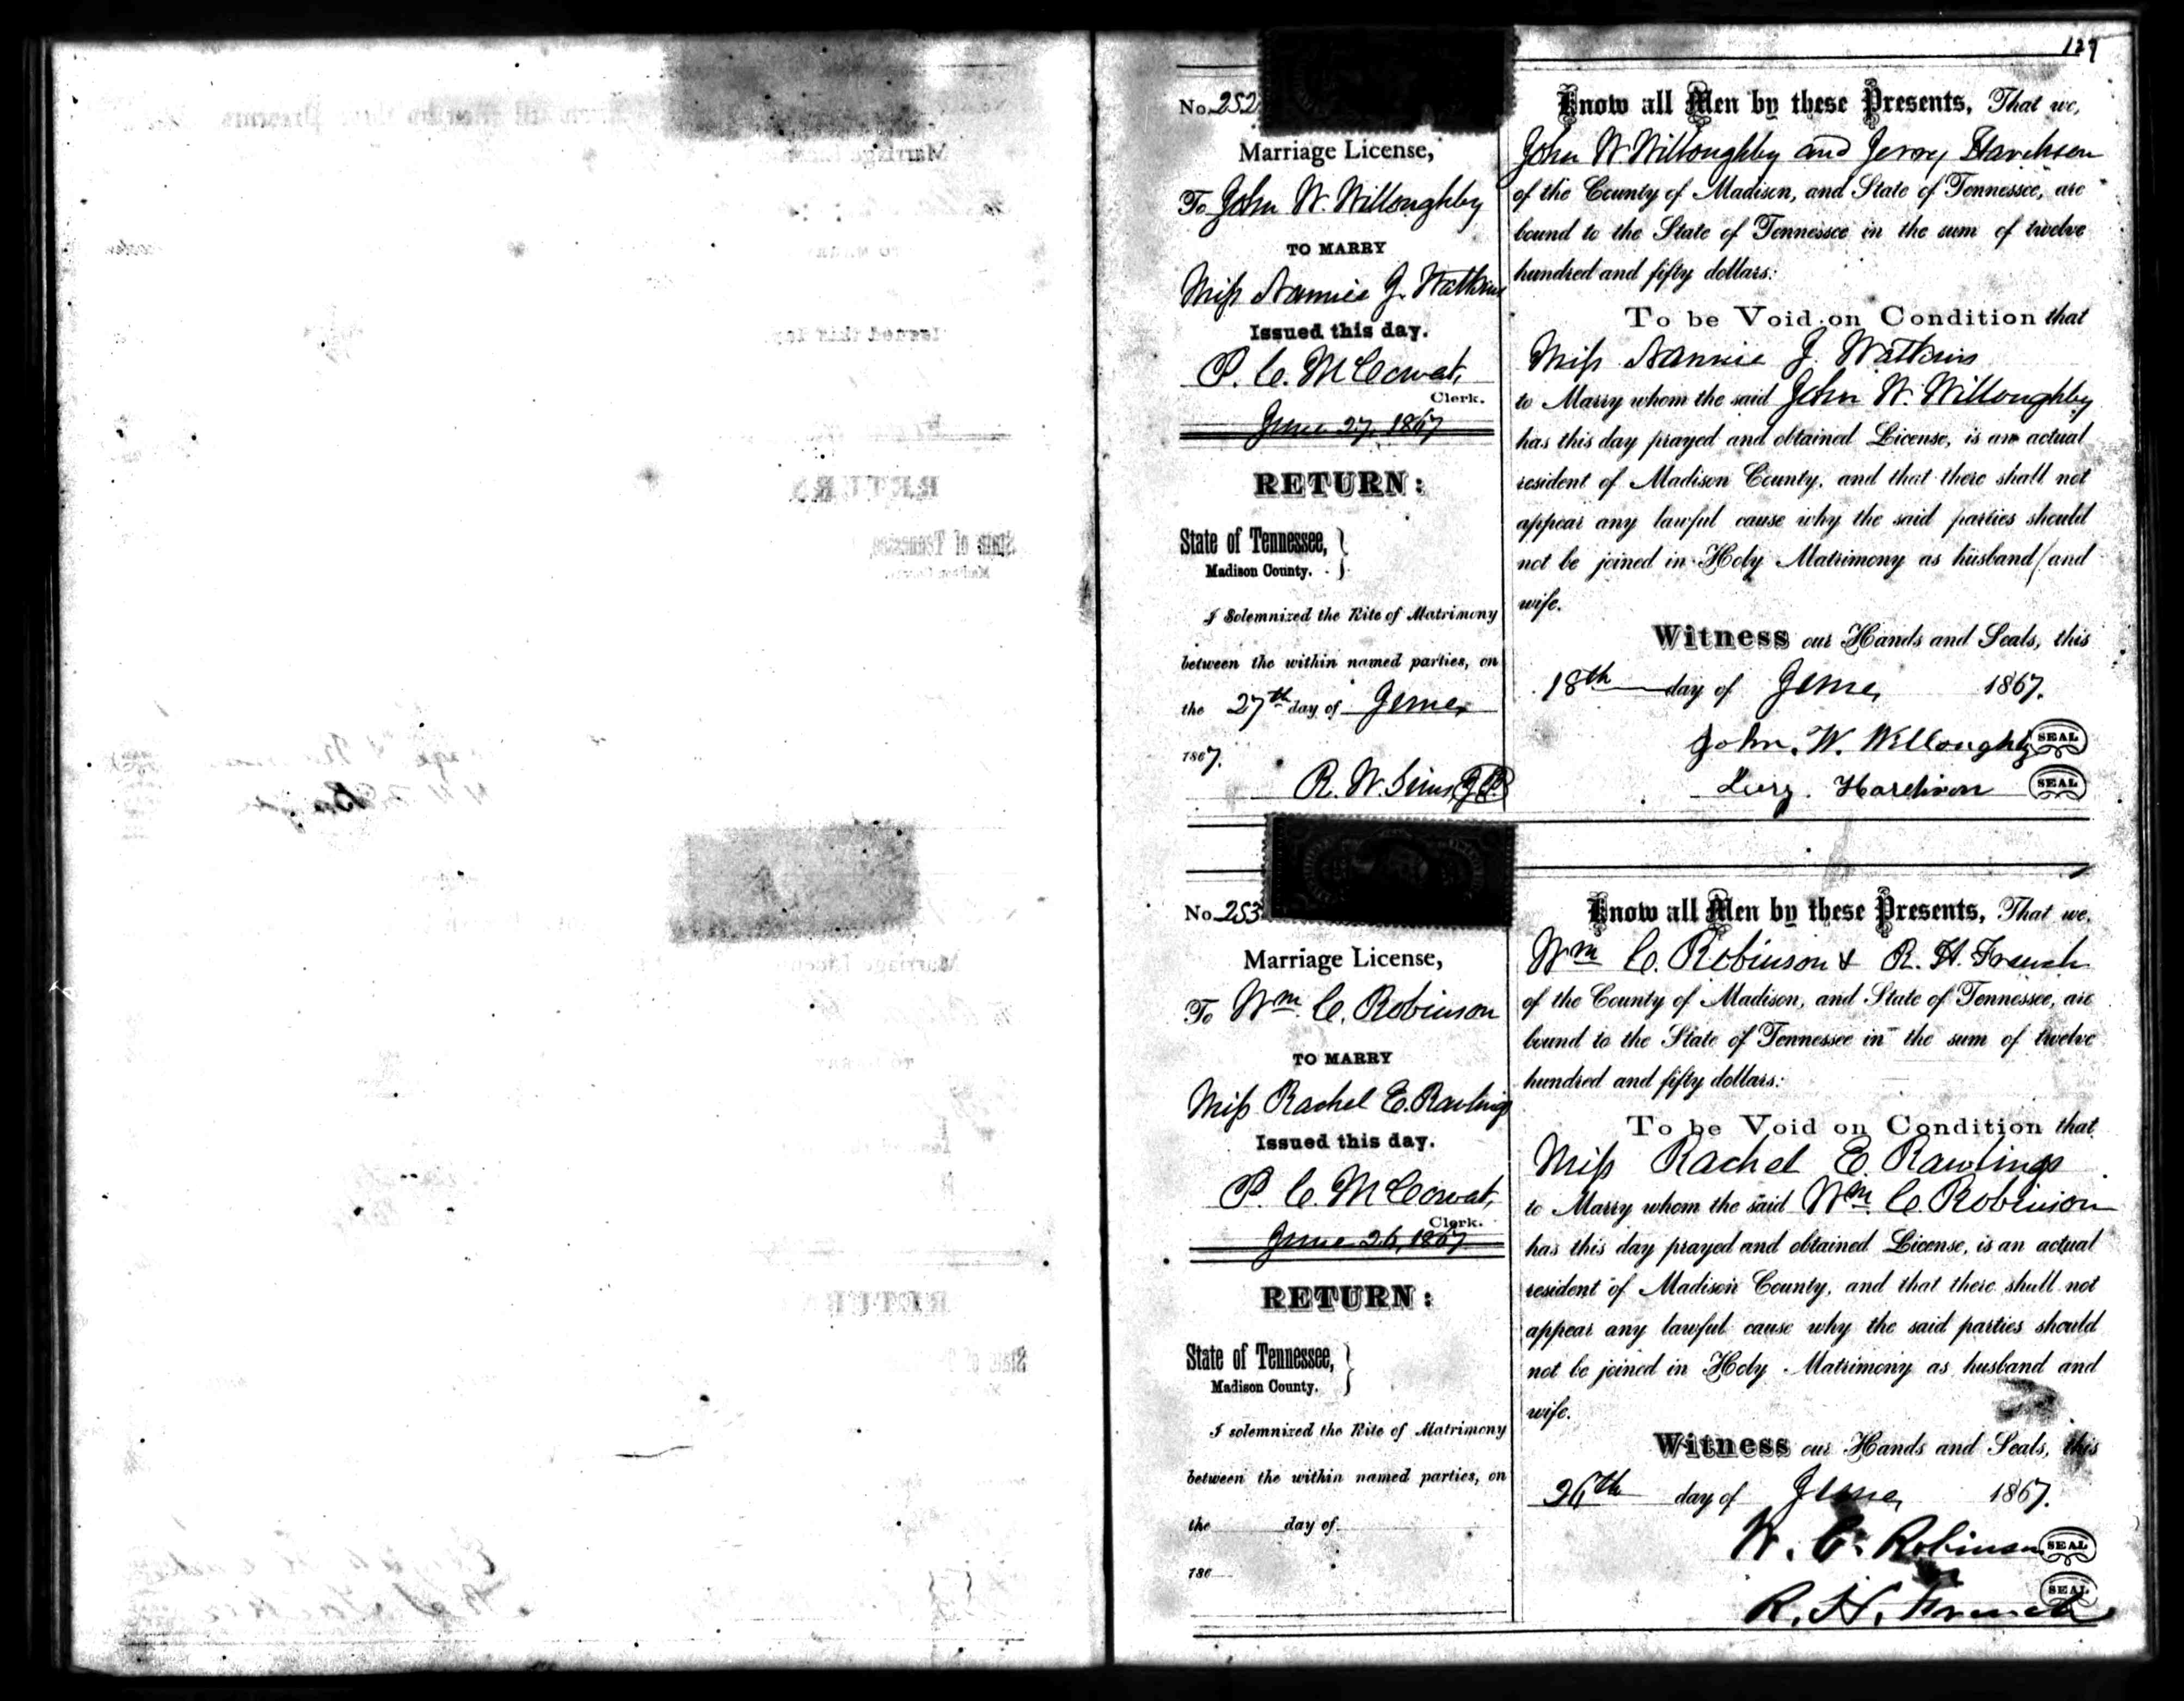 127
No. 252
Marriage License,
To John W. Willoughby
TO MARRY
Miss Nannie J. Watkins
Issued this day.
P. C. McCowat,
Clerk.
June 27, 1867
RETURN:
State of Tennessee,
Madison County.
I Solemnized the Rite of Matrimony
between the within named parties, on
the 27th day of June,
1867.
R. W. Sims, J.P.
Know all Men by these Presents, That we,
John W. Willoughby and Jerry
of the County of Madison, and State of Tennessee, are
bound to the State of Tennessee in the sum of twelve
hundred and fifty dollars:
To be Void on Condition that
Miss Nannie J. Watkins
to Marry whom the said John W. Willoughby
has this day prayed and obtained License, is an actual
resident of Madison County, and that there shall not
appear any lawful cause why the said parties should
not be joined in Holy Matrimony as husband and
wife.
Witness our Hands and Seals, this
18th day of June, 1867.
John. W. Willoughby SEAL
Hardison SEAL
No. 253
Marriage License,
To Wm. C. Robinson
TO MARRY
Miss Rachel E. Rawlings
Issued this day.
P. C. McCowat,
Clerk.
June 26, 1867
RETURN:
State of Tennessee,
Madison County.
I solemnized the Rite of Matrimony
between the within named parties, on
the day of
186
Know all Men by these Presents, That we,
Wm C. Robinson & R. H. French
of the County of Madison, and State of Tennessee, are
bound to the State of Tennessee in the sum of twelve
hundred and fifty dollars:
To be Void on Condition that
Miss Rachel E. Rawlings
to Marry whom the said Wm. C. Robinson
has this day prayed and obtained License, is an actual
resident of Madison County, and that there shall not
appear any lawful cause why the said parties should
not be joined in Holy Matrimony as husband and
wife.
Witness our Hands and Seals, this
26th day of June, 1867.
W. C. Robinson SEAL
R. H. French SEAL